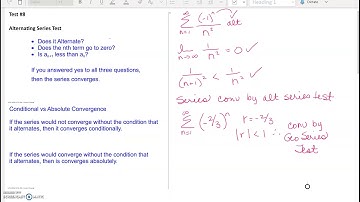 Test #8
Alternating Series Test
• Does it Alternate?
• Does the nth term go to zero?
• Is aₙ₊₁ less than aₙ?
If you answered yes to all three questions,
then the series converges.
Conditional vs Absolute Convergence
If the series would not converge without the condition that
it alternates, then it converges conditionally.
If the series would converge without the condition that
it alternates, then in converges absolutely.
∞
∑ (-1)ⁿ/n² alt
n=1
lim 1/n² = 0 ✓
n→∞
1/(n+1)² < 1/n² ✓
Series conv by alt series test
∞
∑ (-2/3)ⁿ r = -2/3
n=1
|r| < 1 ∴ conv by
Geo Series
Test